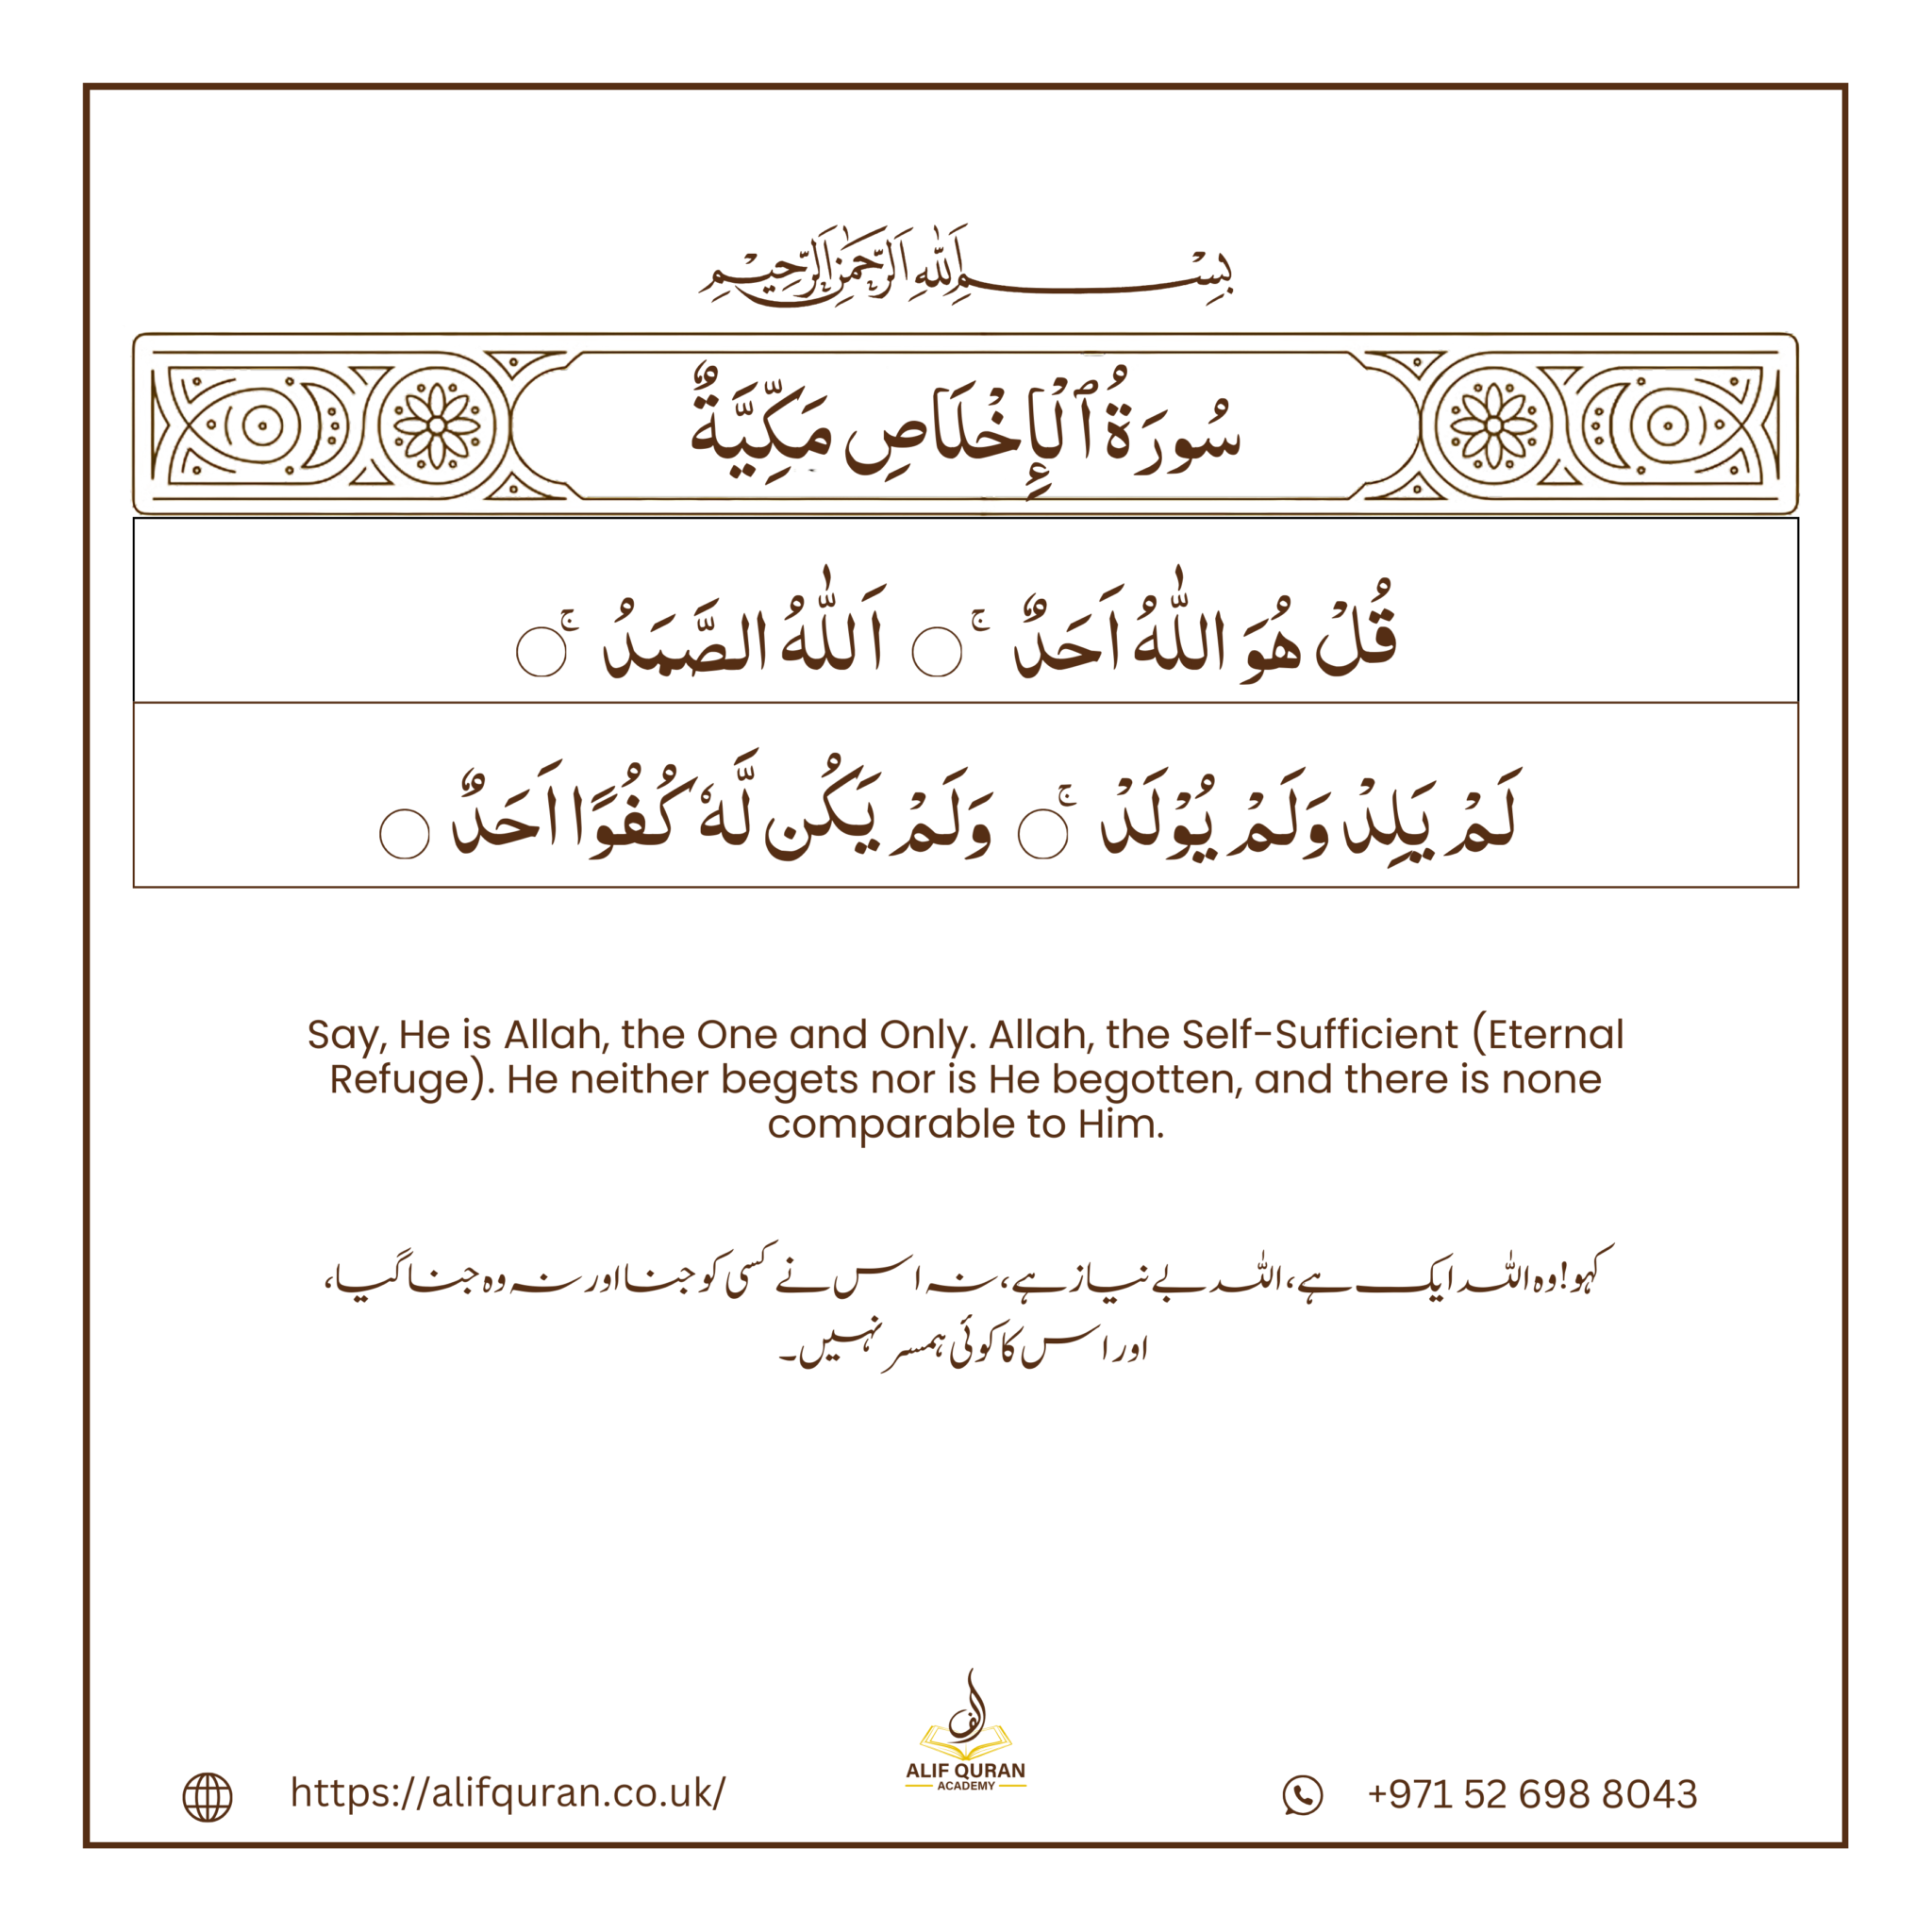 بِسْمِ اللهِ الرَّحْمٰنِ الرَّحِيْمِ
سُورَةُ ٱلۡإِخۡلَاصِ مَكِّيَّةٌ
قُلْ هُوَ اللّٰهُ اَحَدٌ ۚ ○ اَللّٰهُ الصَّمَدُ ۚ ○
لَمْ يَلِدْ وَلَمْ يُوْلَدْ ۚ ○ وَلَمْ يَكُن لَّهٗ كُفُوًا اَحَدٌ ○
Say, He is Allah, the One and Only. Allah, the Self-Sufficient (Eternal
Refuge). He neither begets nor is He begotten, and there is none
comparable to Him.
کہو! وہ اللہ ایک ہے، اللہ بے نیاز ہے، نہ اس نے کسی کو جنا اور نہ وہ جنا گیا،
اور اس کا کوئی ہمسر نہیں۔
ALIF QURAN
ACADEMY
https://alifquran.co.uk/
+971 52 698 8043